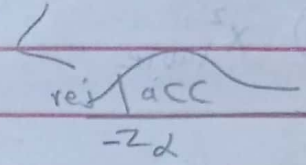 rej acc
-Zα